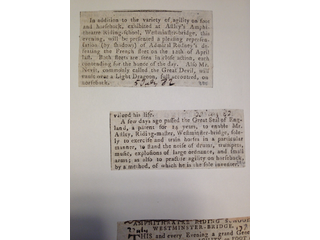 In addition to the variety of agility on foot
and horseback, exhibited at Astley's Amphi-
theatre Riding-School, Westminster-bridge, this
evening, will be presented a pleasing represen-
tation (by shadows) of Admiral Rodney's de-
feating the French fleet on the 12th of April
last. Both fleets are seen in close action, each
contending for the honor of the day. Also Mr.
commonly called the Great Devil, will
vault over a Light Dragoon, full accoutred, on
horseback.
82
valued his life.
82
A few days ago passed the Great Seal of Eng-
land, a patent for 14 years, to enable Mr.
Astley, Riding-master, Westminster-bridge, solely
to exercise and train horses in a particular
manner, to stand the noise of drums, trumpets,
music, explosions of large ordnance, and small
arms; as also to practise agility on horseback,
by a method, of which he is the sole inventor.
AMPHITHEATRE RIDING
WESTMINSTER-BRIDGE.
THIS and every Evening a grand